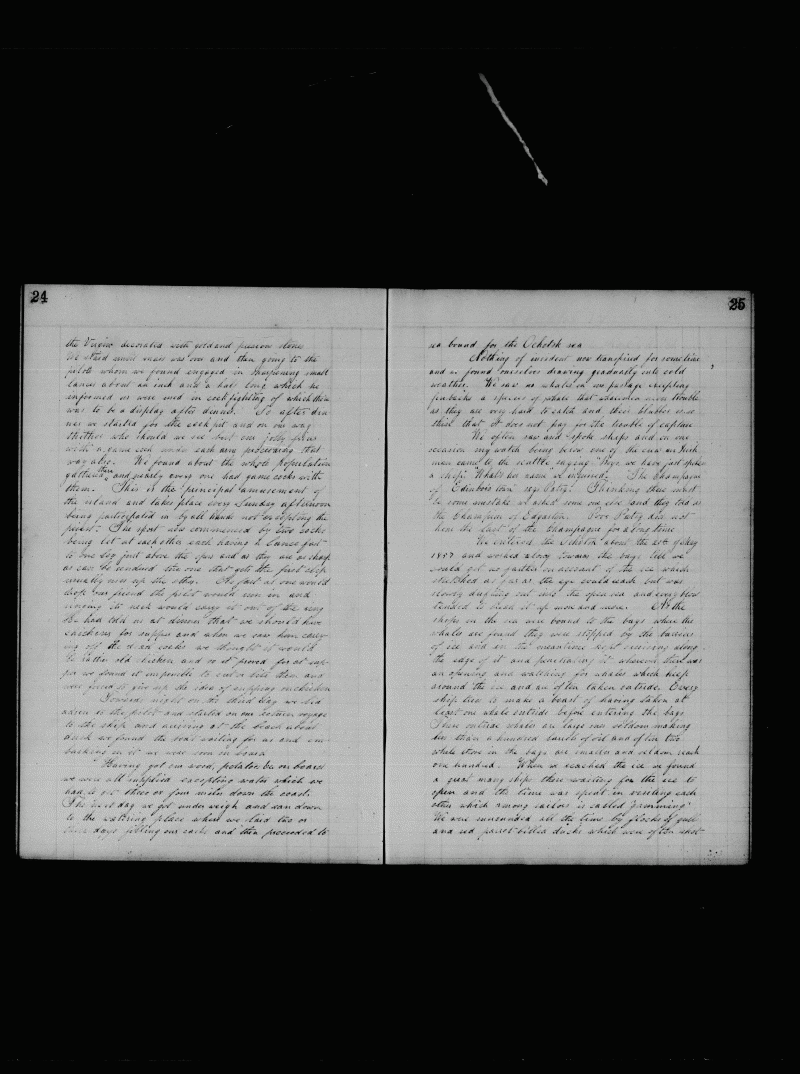 24
the Virgin decorated with gold and precious stones
We staid until mass was over and then going to the
pilots whom we found engaged in sharpening small
lances about an inch and a half long which he
informed us were used in cock fighting of which there
was to be a display after dinner. So after din
ner we started for the cock pit and on our way
thither who should we see but our jolly priest
with a game cock under each arm proceeding that
way also. We found about the whole population
gathered there and nearly every one had game cocks with
them. This is the principal amusement of
the island and takes place every Sunday afternoon
being participated in by all hands not excepting the
priest. The sport was commenced by two cocks
being let at each other each having a lance fast
to one leg just above the spur and as they are as sharp
as can be rendered the one that gets the first clip
usually uses up the other. As fast as one would
drop our friend the pilot would run in and
wringing its neck would carry it out of the ring
He had told us at dinner that we should have
chickens for supper and when we saw him carry-
ing off the dead cocks we thought it would
be rather old chicken and so it proved for at sup-
per we found it impossible to cut or bite them and
were forced to give up the idea of supping on chicken
Towards night on the third day we bid
adieu to the pilot and started on our return voyage
to the ship and arriving at the beach about
dusk we found the boat waiting for us and em-
barking in it we were soon on board
Having got our wood, potatoes &c on board
we were all supplied excepting water which we
had to get three or four miles down the coast.
The next day we got under weigh and ran down
to the watering place where we laid two or
three days filling our casks and then proceeded to
25
sea bound for the Ochotsk sea
Nothing of incident now transpired for some time
and we found ourselves drawing gradually into cold
weather. We saw no whales on our passage excepting
finbacks a species of whale that whalemen never trouble
as they are very hard to catch and their blubber is so
thin that it does not pay for the trouble of capture
We often saw and spoke ships and on one
occasion my watch being below one of the crew an Irish
man came to the scuttle saying "Boys we have just spoken
a ship." What's her name we inquired. "The Champagne
of Edinboro town" says Patsy. Thinking there must
be some mistake we asked some one else and they told us
the Champion of Edgartown. Poor Patsy did not
hear the last of the Champagne for a long time
We entered the Ochotsk about the 20th of May
1857 and worked along towards the bays till we
could get no farther on account of the ice which
stretched as far as the eye could reach but was
slowly drifting out into the open sea and every blow
tended to break it up more and more. As the
ships in the sea were bound to the bays where the
whales are found they were stopped by this barrier
of ice and in the meantime kept cruising along
the edge of it and penetrating it wherever there was
an opening and watching for whales which keep
around the ice and are often taken outside. Every
ship tries to make a boast of having taken at
least one whale outside before entering the bays
These outside whales are large ones seldom making
less than a hundred barrels of oil and often two
while those in the bays are smaller and seldom reach
one hundred. When we reached the ice we found
a great many ships there waiting for the ice to
open and the time was spent in visiting each
other which among sailors is called "gamming"
We were surrounded all the time by flocks of gulls
and red parrot-billed ducks which were often shot